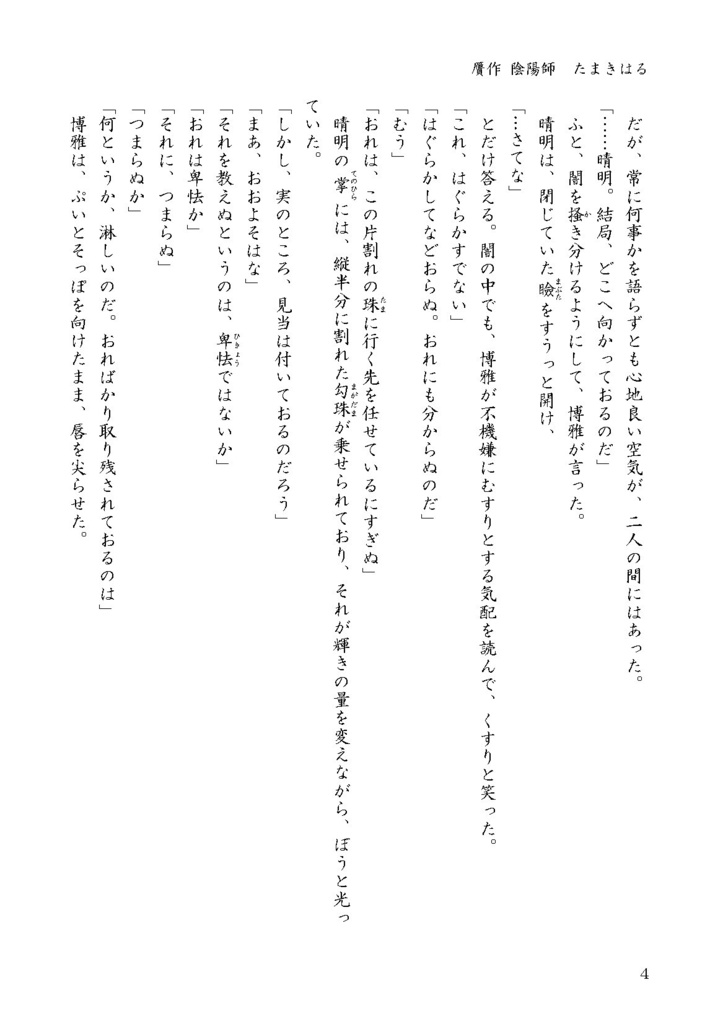 贋作 陰陽師　たまきはる
　だが、常に何事かを語らずとも心地良い空気が、二人の間にはあった。
「……晴明。結局、どこへ向かっておるのだ」
　ふと、闇を掻き分けるようにして、博雅が言った。
　晴明は、閉じていた瞼をすうっと開け、
「…さてな」
　とだけ答える。闇の中でも、博雅が不機嫌にむすりとする気配を読んで、くすりと笑った。
「これ、はぐらかすでない」
「はぐらかしてなどおらぬ。おれにも分からぬのだ」
「むう」
「おれは、この片割れの珠に行く先を任せているにすぎぬ」
　晴明の掌には、縦半分に割れた勾珠が乗せられており、それが輝きの量を変えながら、ぼうと光っ
ていた。
「しかし、実のところ、見当は付いておるのだろう」
「まあ、おおよそはな」
「それを教えぬというのは、卑怯ではないか」
「おれは卑怯か」
「それに、つまらぬ」
「つまらぬか」
「何というか、淋しいのだ。おればかり取り残されておるのは」
　博雅は、ぷいとそっぽを向けたまま、唇を尖らせた。
4